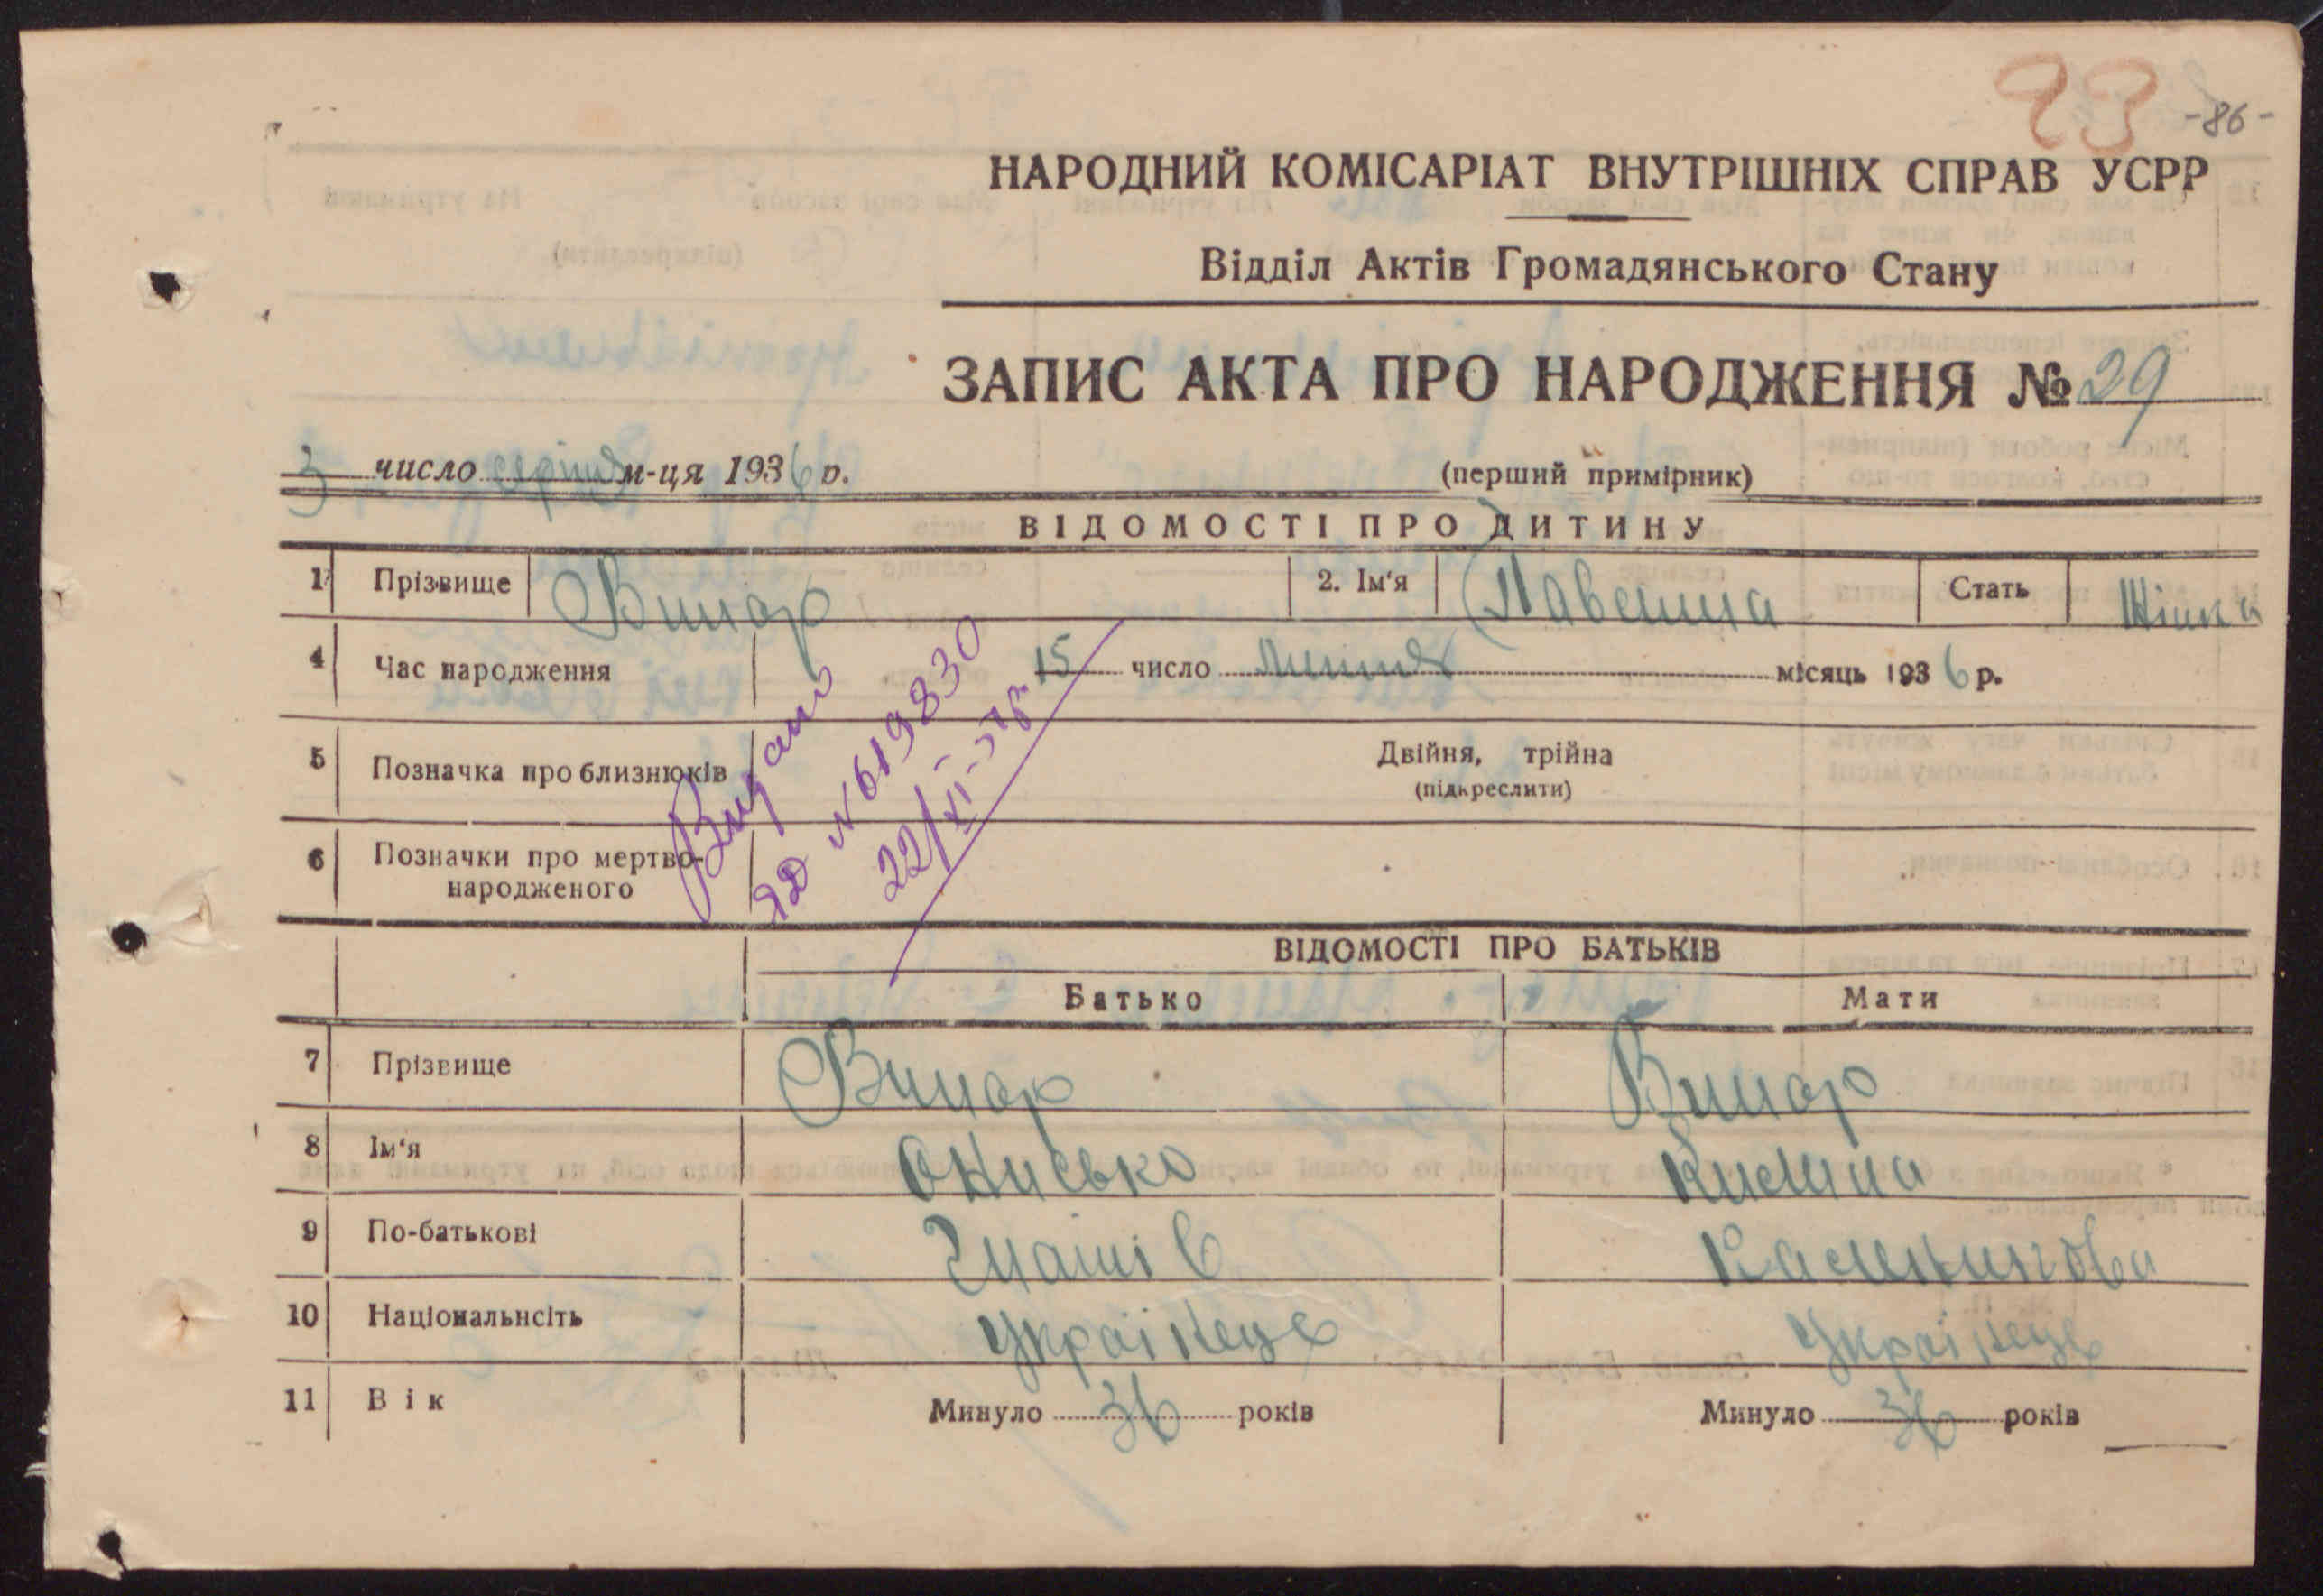 93 -86-
НАРОДНИЙ КОМІСАРІАТ ВНУТРІШНІХ СПРАВ УСРР
Відділ Актів Громадянського Стану
ЗАПИС АКТА ПРО НАРОДЖЕННЯ № 29
3 число серпня м-ця 1936 р. (перший примірник)
ВІДОМОСТІ ПРО ДИТИНУ
1 Прізвище Винар 2. Ім'я Павелина Стать Жінка
4 Час народження 15 число Липня місяць 1936 р.
5 Позначка про близнюків Двійня, трійна
(підкреслити)
6 Позначки про мертво-
народженого
Видано
ЯД №619830
22/VI-
ВІДОМОСТІ ПРО БАТЬКІВ
Батько Мати
7 Прізвище Винар Винар
8 Ім'я Онисько
9 По-батькові Гнатів
10 Національнсіть Українець Українець
11 Вік Минуло 36 років Минуло 36 років